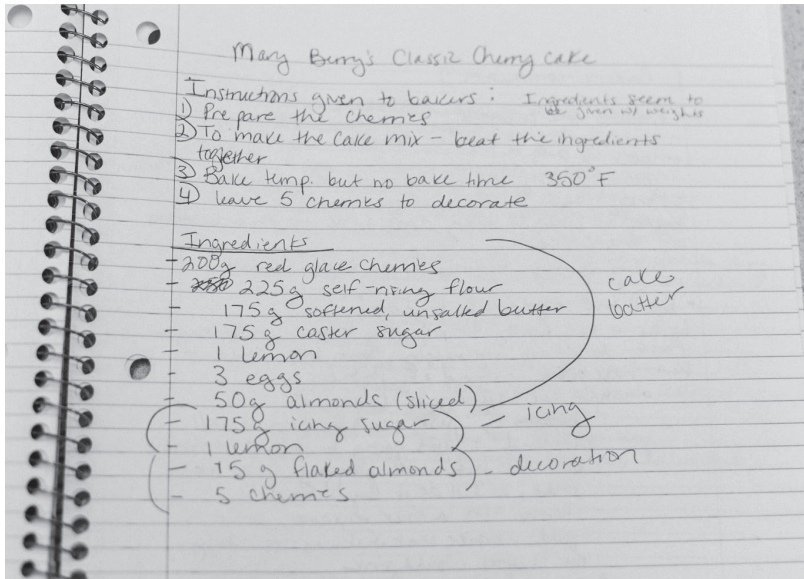 Mary Berry's Classic Cherry Cake
Instructions given to bakers: Ingredients seem to
be given w/ weights
1) Prepare the cherries
2) To make the cake mix - beat the ingredients
together
3) Bake temp. but no bake time 350°F
4) leave 5 cherries to decorate
Ingredients
- 200g red glace cherries
- 225g self-rising flour
175g softened, unsalted butter
- 175g caster sugar
- 1 lemon
- 3 eggs
- 50g almonds (sliced)
cake
batter
- 175g icing sugar = icing
- 1 lemon
- 15g flaked almonds - decoration
- 5 cherries